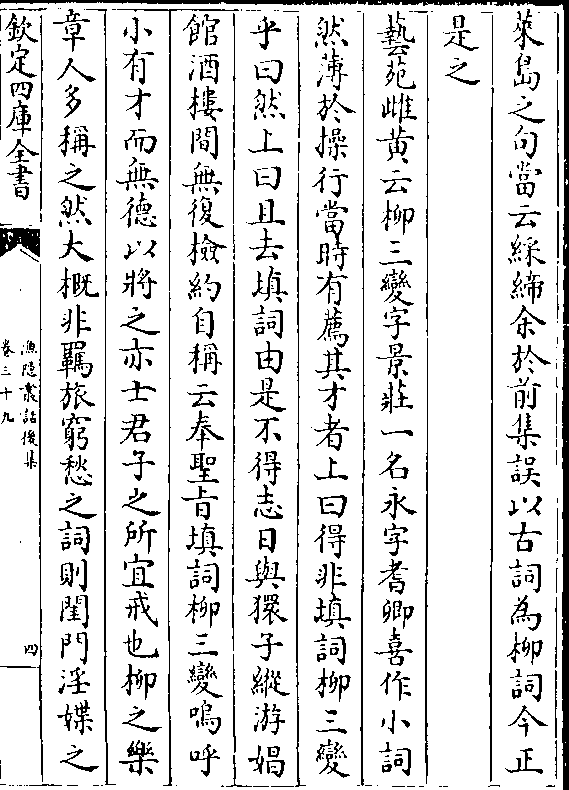 萊島之句當云綵締余於前集誤以古詞為柳詞今正
是之
藝苑雌黄云柳三變字景莊一名永字耆卿喜作小詞
然薄於操行當時有薦其才者上曰得非填詞柳三變
乎曰然上曰且去填詞由是不得志日與獧子縱游娼
館酒樓間無復檢約自稱云奉聖旨填詞柳三變嗚呼
小有才而無德以將之亦士君子之所宜戒也柳之樂
章人多稱之然大概非羈旅窮愁之詞則閨門淫媟之
欽定四庫全書
漁隠叢話後集
卷三十九
四